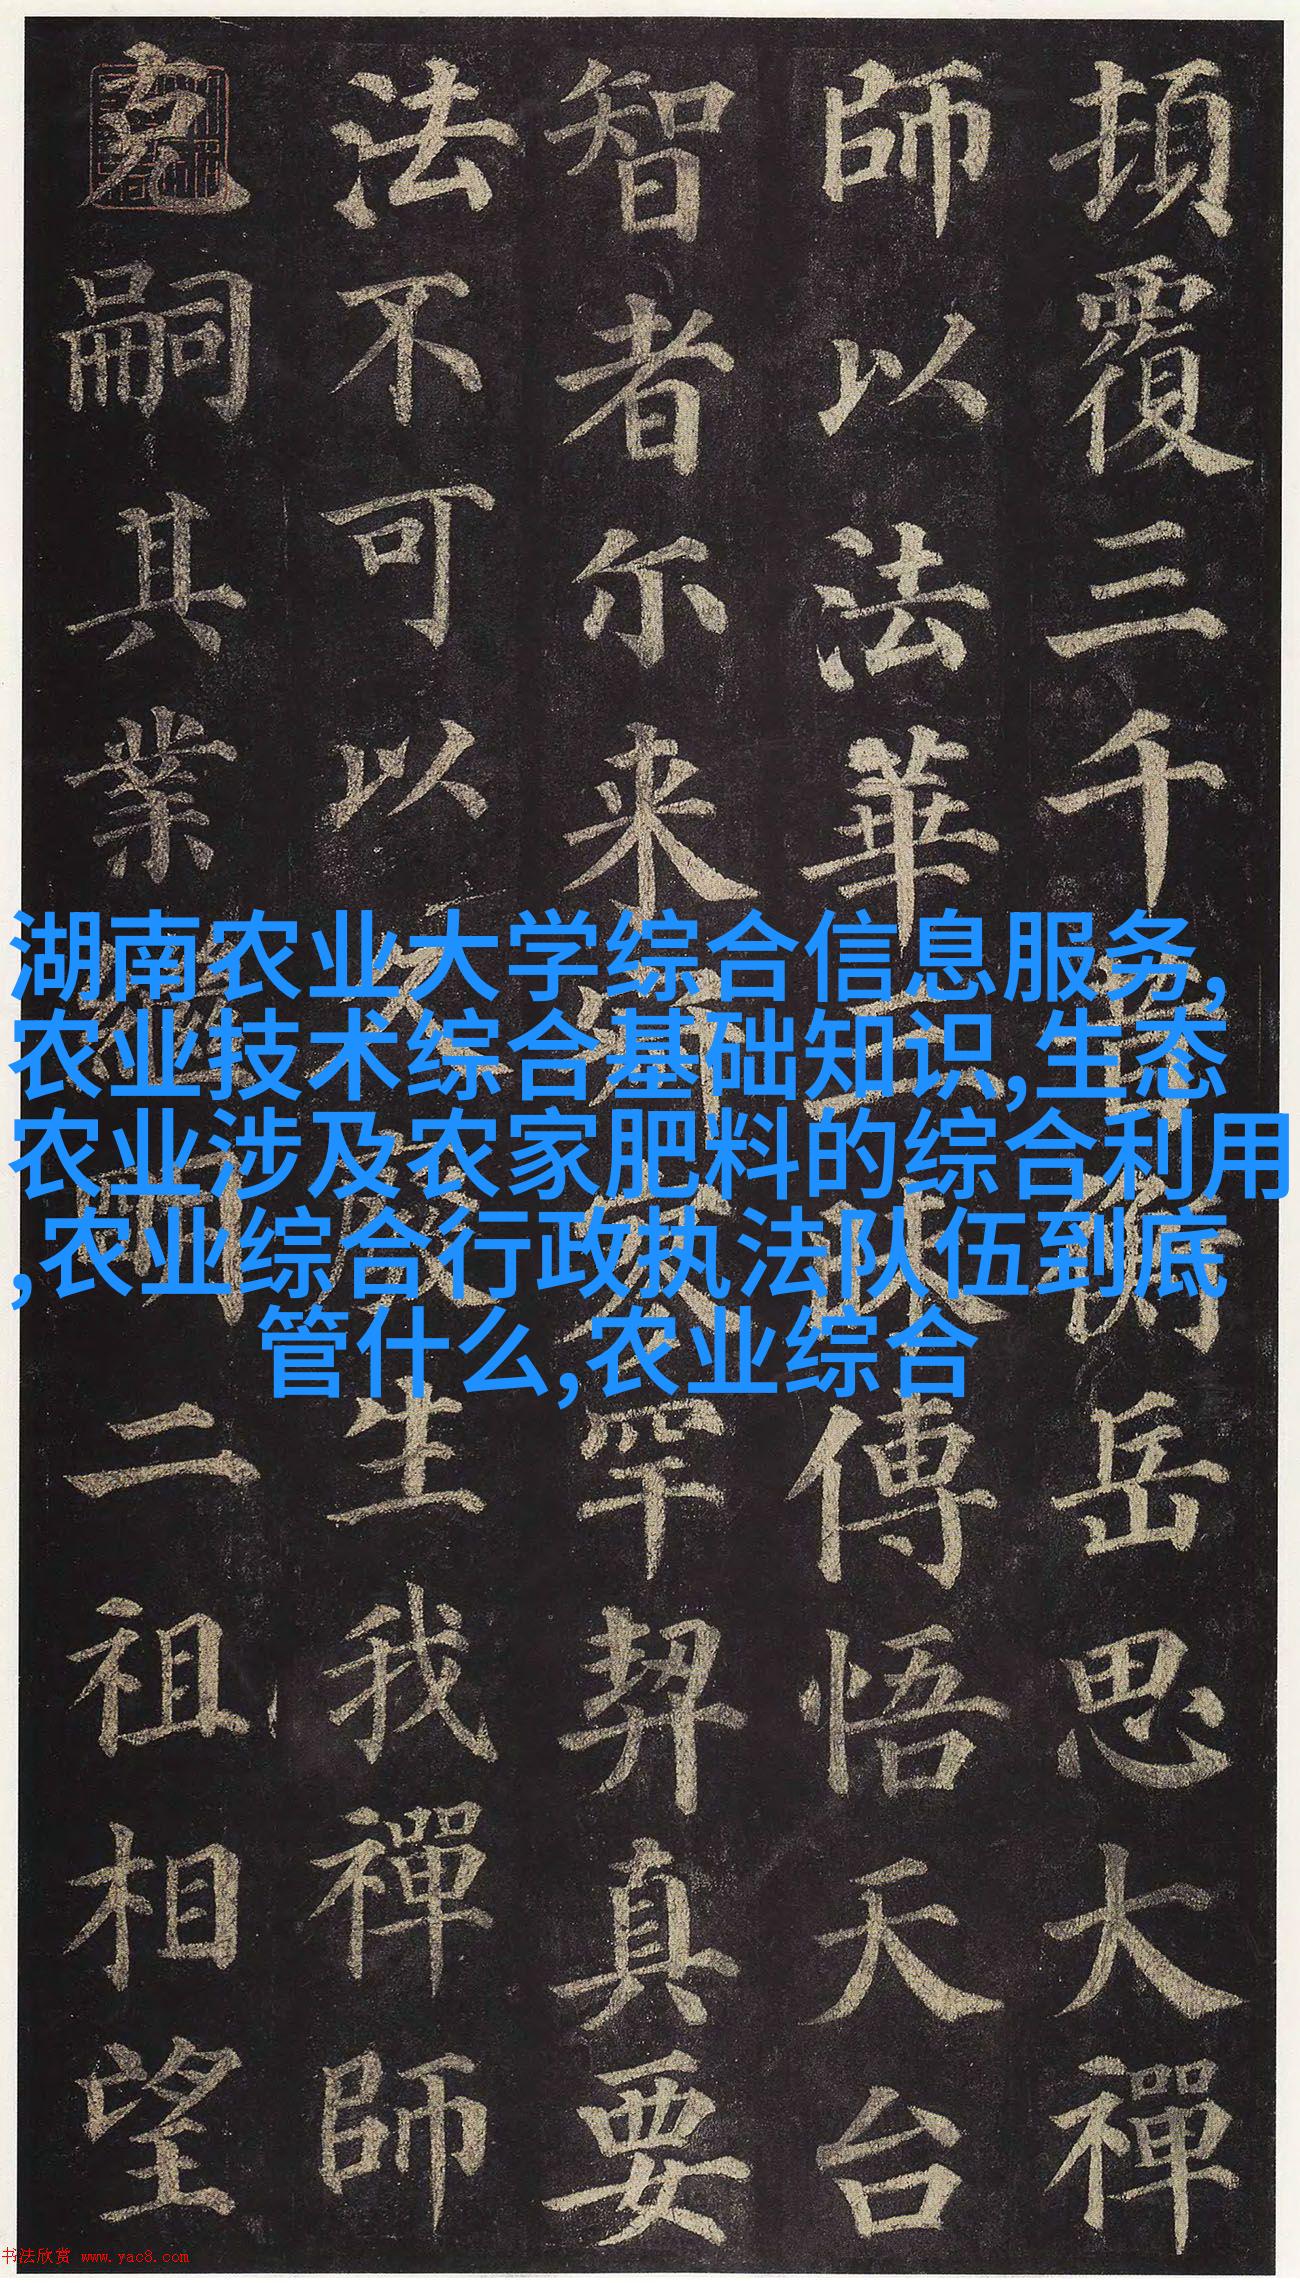 頂覆三千昔衡岳思大禪
師以法華三昧傳悟天台
智者尔来罕契真要
法不可以久廢生我禪師
克嗣其業繼明二祖相望
湖南农业大学综合信息服务,
农业技术综合基础知识,生态
农业涉及农家肥料的综合利用
,农业综合行政执法队伍到底
管什么,农业综合
书法欣赏 www.yac8.com